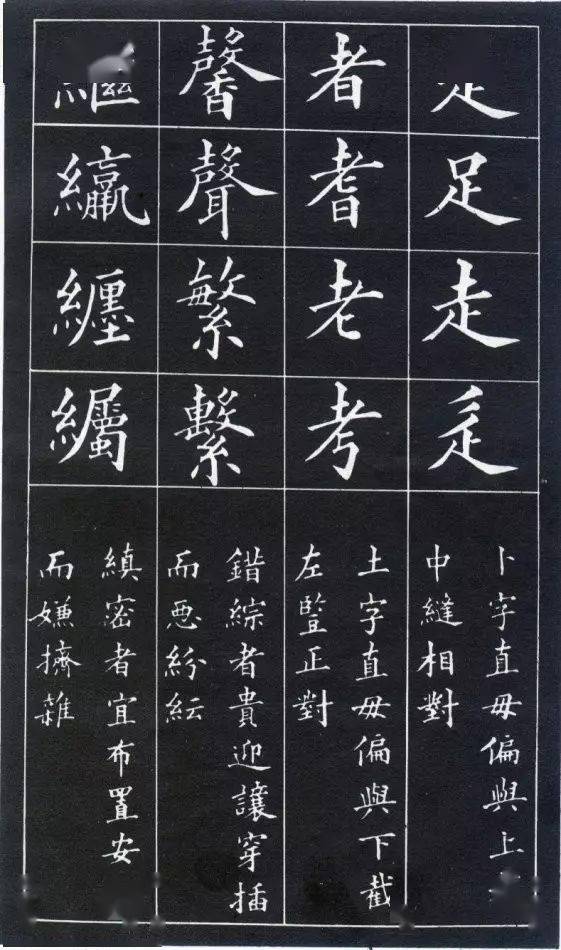 足走
卜字直毋偏與上
中縫相對
者耆老考
土字直毋偏與下截
左豎正對
馨聲繁繫
錯綜者貴迎讓穿插
而惡紛紜
纏
縝密者宜布置安
而嫌擠雜